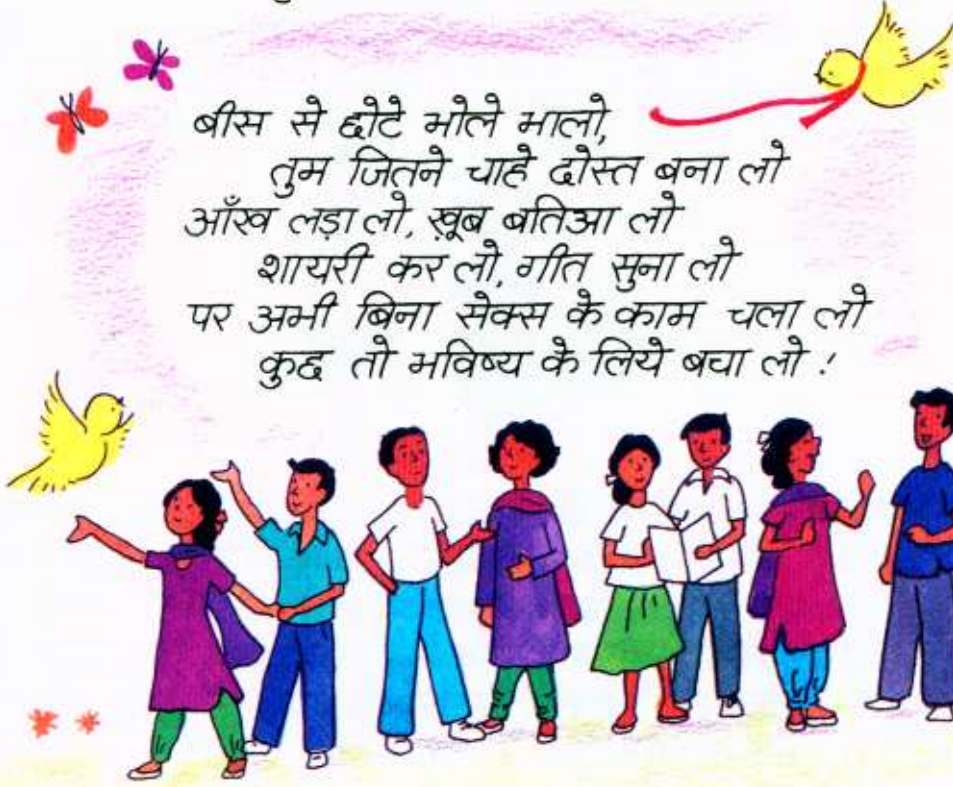 बीस से छोटे भोले भालो,
तुम जितने चाहे दोस्त बना लो
आँख लड़ा लो, ख़ूब बतिआ लो
शायरी कर लो, गीत सुना लो
पर अभी बिना सेक्स के काम चला लो
कुछ तो भविष्य के लिये बचा लो !